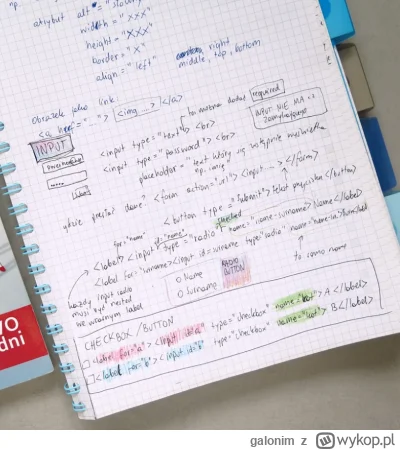 np. atrybut alt="słowny
width = "XXX"
height = "XXX"
border = "X"
align = "left" right
middle, top, bottom
obrazek jako link
<a href="..."> <img ...> </a>
to można dodać required
INPUT
<input type="text"> <br>
INPUT NIE MA
<input type="password"> <br>
placeholder="text który się
np. imię
gdzie przesłać dane? <form action="url"> <input ...> </form>
<button type="submit"> tekst przycisku </button>
for="name" id="name" checked
<label> <input type="radio" name="name-surname> Name</label>
<label for="surname><input id=surname type="radio" name=
każdy input radio
musi być nested
we własnym label
RADIO
BUTTON
O Name
O Surname
to samo name
WO
dni
CHECKBOX / BUTTON
<label for="a"> <input id="a" type="checkbox" name="bot"> A </label>
<label for="b"> <input id="b" type="checkbox" name="bot"> B </label>
galonim z wykop.pl